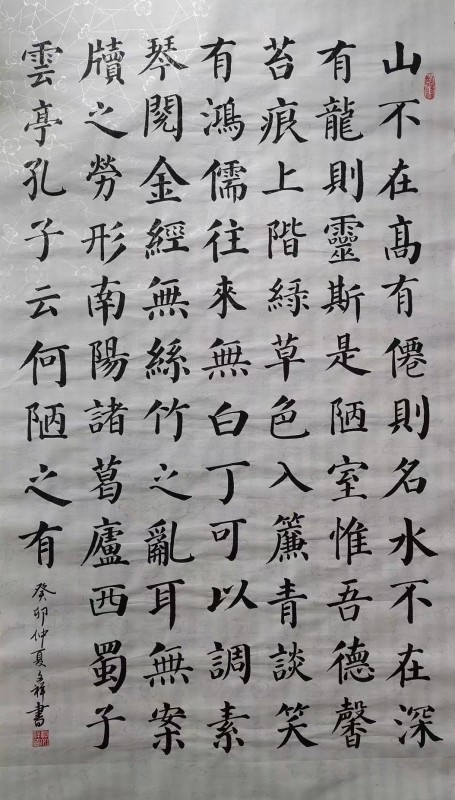 山不在髙有僊則名水不在深
有龍則靈斯是陋室惟吾德馨
苔痕上階緑草色入簾青談笑
有鴻儒往來無白丁可以調素
琴閱金經無絲竹之亂耳無案
牘之勞形南陽諸葛廬西蜀子
雲亭孔子云何陋之有
癸卯仲夏祥書